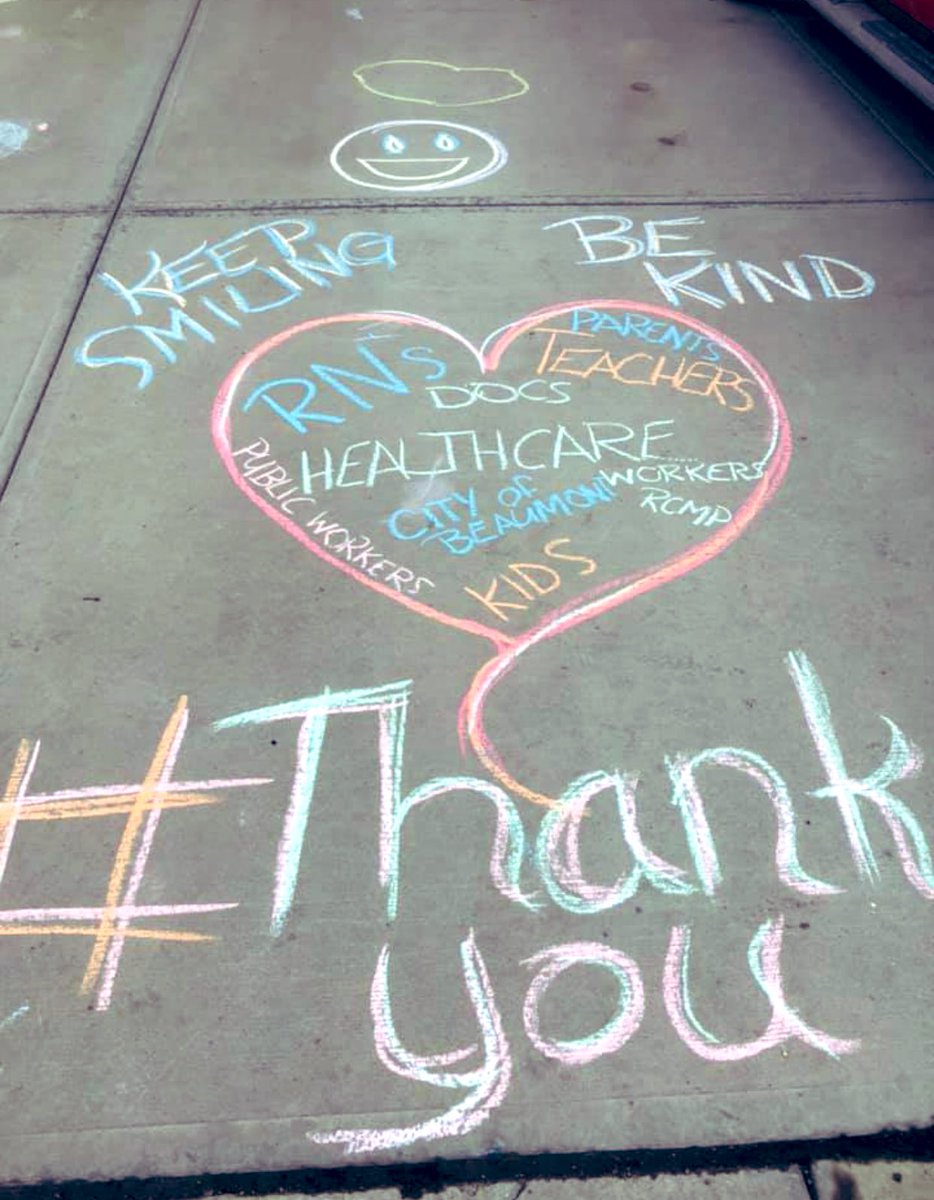 KEEP
SMILING
BE
KIND
PARENTS
TEACHERS
RNs
DOCS
HEALTHCARE
WORKERS
RCMP
PUBLIC WORKERS
CITY of
BEAUMONT
KIDS
#Thank
you